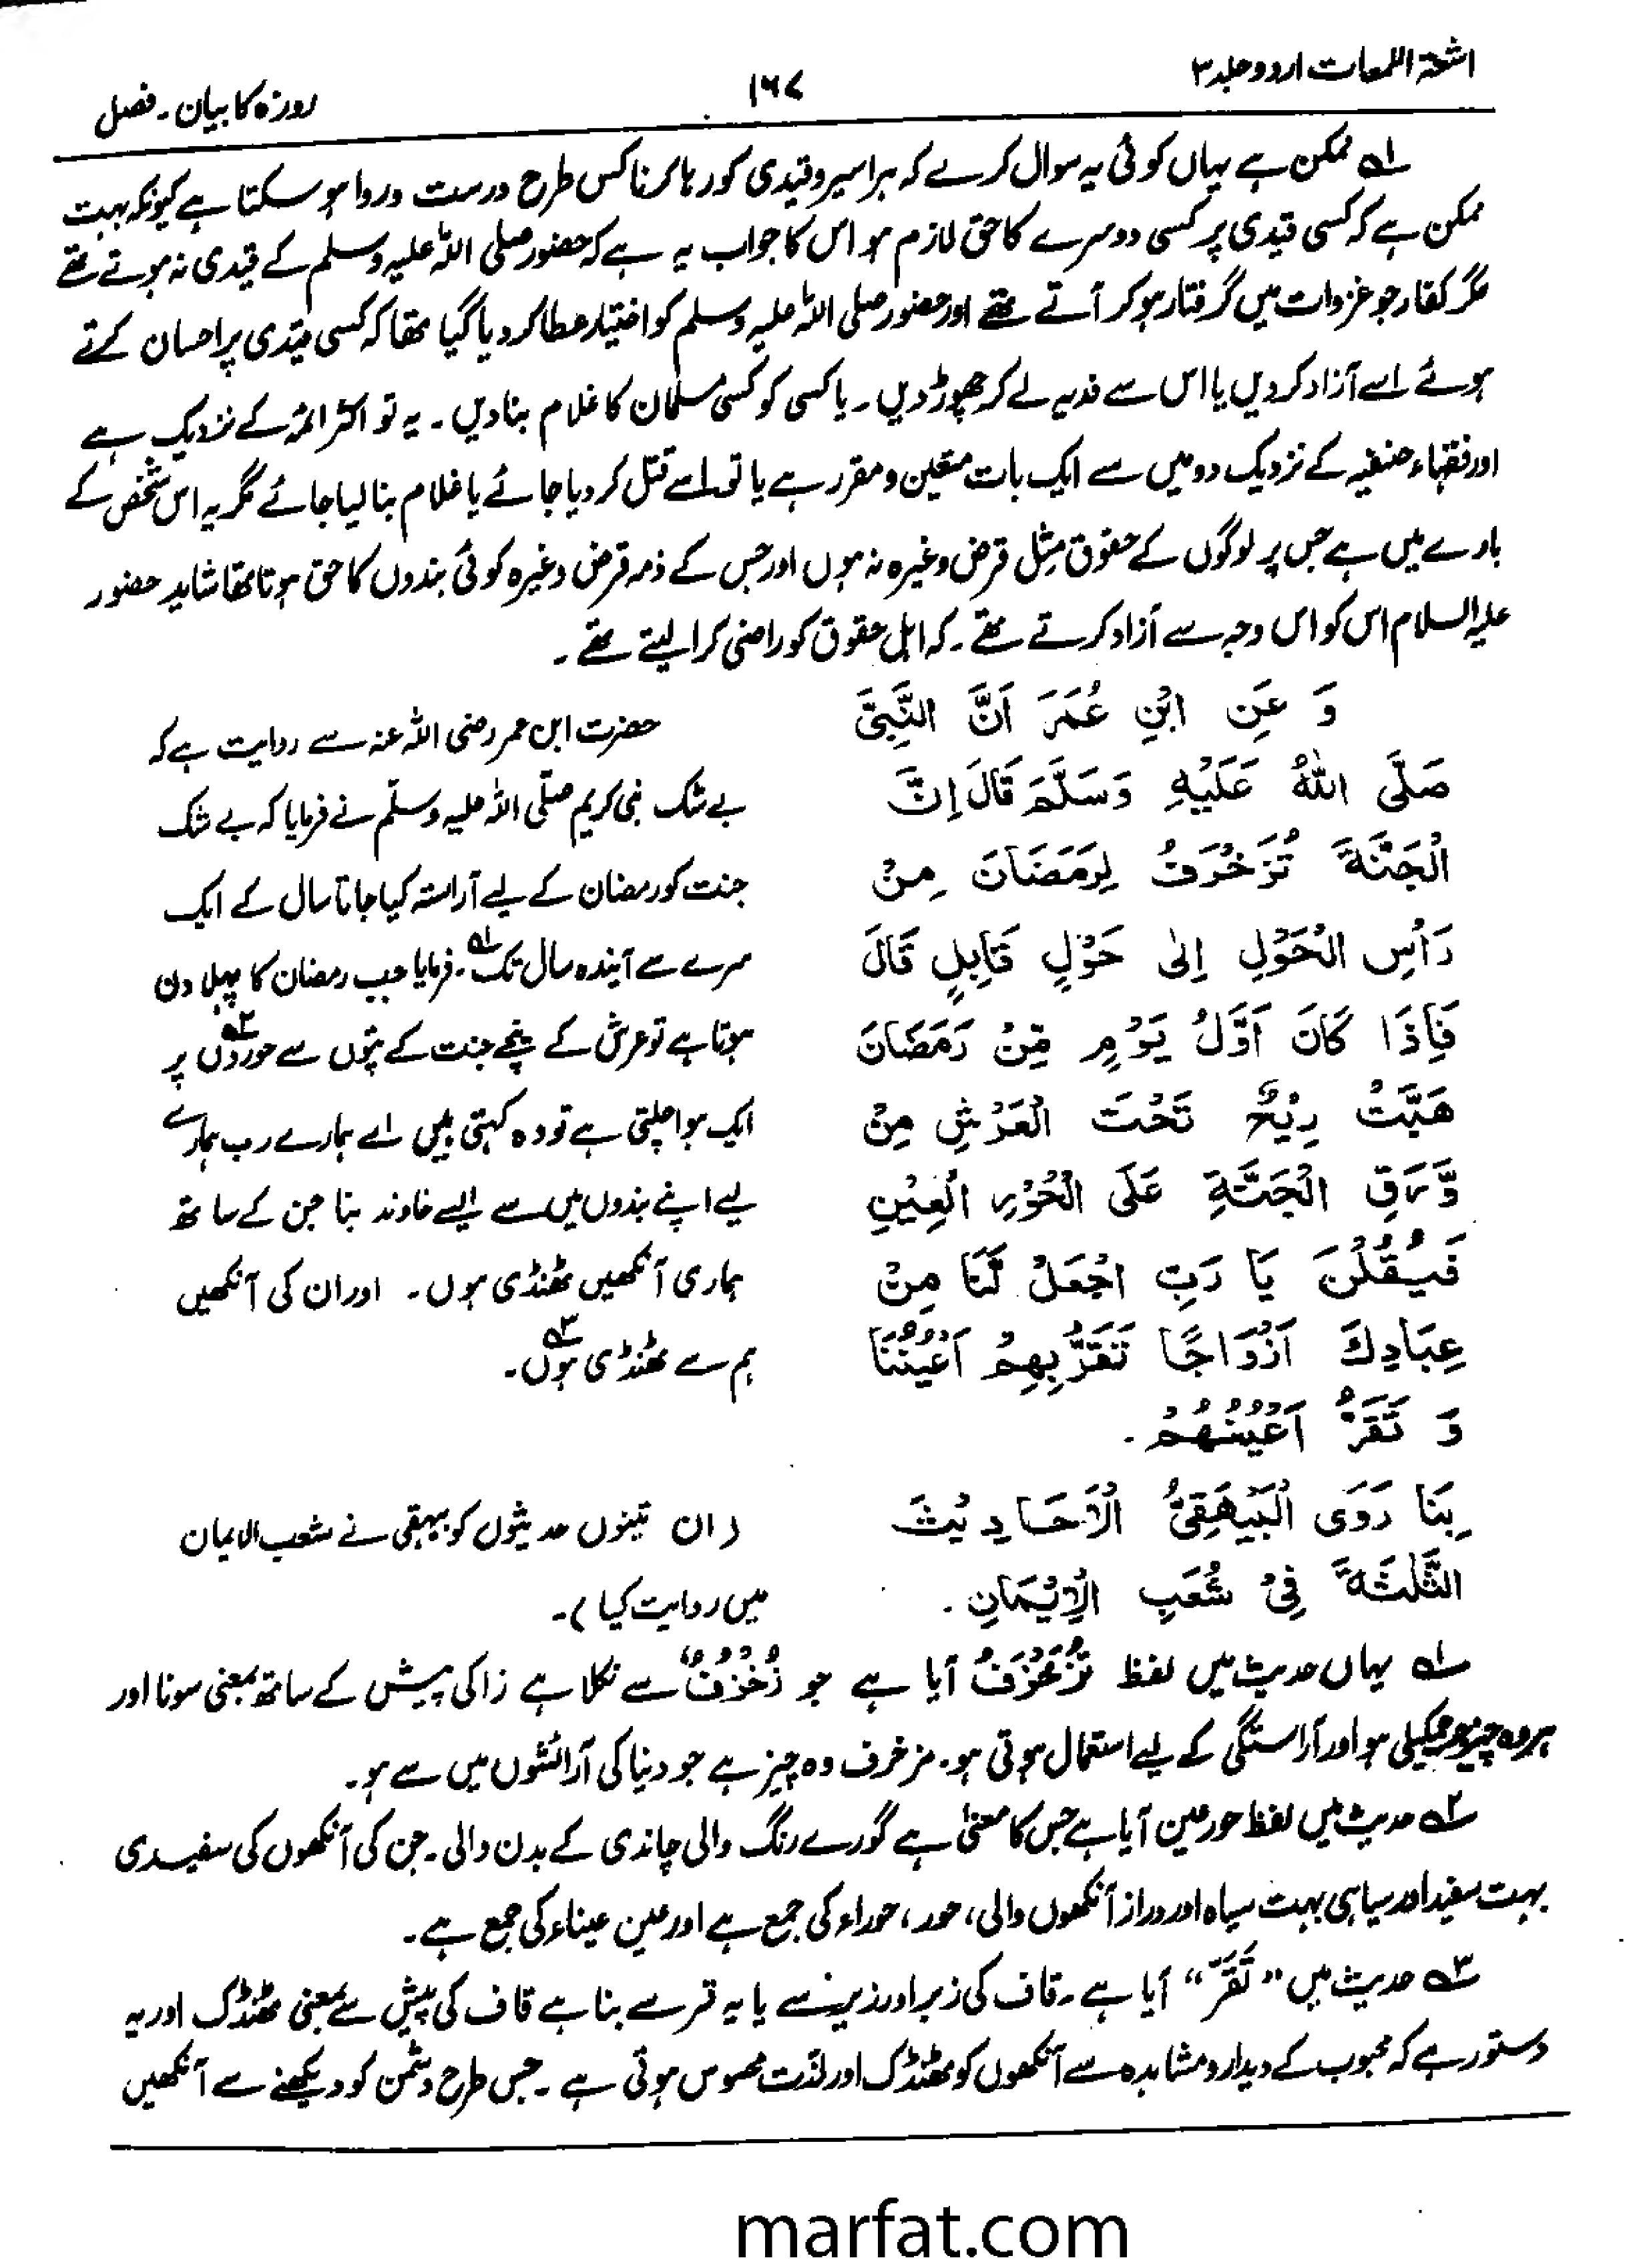 اشعۃ اللمعات اردو جلد ۳
۱۶۷
روزہ کا بیان ۔ فصل
۱ ممکن ہے یہاں کوئی یہ سوال کرے کہ ہر اسیر و قیدی کو رہا کرنا کس طرح درست و روا ہو سکتا ہے کیونکہ بہت
ممکن ہے کہ کسی قیدی پر کسی دوسرے کا حق لازم ہو اس کا جواب یہ ہے کہ حضور صلی اللہ علیہ وسلم کے قیدی نہ ہوتے تھے
مگر کفار جو غزوات میں گرفتار ہو کر آتے تھے اور حضور صلی اللہ علیہ وسلم کو اختیار عطا کر دیا گیا تھا کہ کسی قیدی پر احسان کرتے
ہوئے اسے آزاد کر دیں یا اس سے فدیہ لے کر چھوڑ دیں ۔ یا کسی کو کسی مسلمان کا غلام بنا دیں ۔ یہ تو اکثر ائمہ کے نزدیک ہے
اور فقہاء حنفیہ کے نزدیک دو میں سے ایک بات متعین و مقرر ہے یا تو اسے قتل کر دیا جائے یا غلام بنا لیا جائے مگر یہ اس شخص کے
بارے میں ہے جس پر لوگوں کے حقوق مثل قرض وغیرہ نہ ہوں اور جس کے ذمہ قرض وغیرہ کوئی بندوں کا حق ہوتا تھا شاید حضور
علیہ السلام اس کو اس وجہ سے آزاد کرتے تھے ۔ کہ اہل حقوق کو راضی کرا لیتے تھے ۔
وَ عَنِ ابْنِ عُمَرَ اَنَّ النَّبِیَّ
صَلَّی اللّٰهُ عَلَیْهِ وَسَلَّمَ قَالَ اِنَّ
الْجَنَّةَ تُزَخْرَفُ لِرَمَضَانَ مِنْ
رَاْسِ الْحَوْلِ اِلٰی حَوْلٍ قَابِلٍ قَالَ
فَاِذَا کَانَ اَوَّلُ یَوْمٍ مِّنْ رَمَضَانَ
هَبَّتْ رِیْحٌ تَحْتَ الْعَرْشِ مِنْ
وَّرَقِ الْجَنَّةِ عَلَی الْحُوْرِ الْعِیْنِ
فَیَقُلْنَ یَا رَبِّ اجْعَلْ لَّنَا مِنْ
عِبَادِكَ اَزْوَاجًا تَقَرُّ بِهِمْ اَعْیُنُنَا
وَ تَقَرُّ اَعْیُنُهُمْ ۔
بِنَا رَوَی الْبَیْهَقِیُّ الْاَحَادِیْثَ
الثَّلٰثَةَ فِیْ شُعَبِ الْاِیْمَانِ ۔
حضرت ابن عمر رضی اللہ عنہ سے روایت ہے کہ
بے شک نبی کریم صلی اللہ علیہ وسلم نے فرمایا کہ بے شک
جنت کو رمضان کے لیے آراستہ کیا جاتا سال کے ایک
سرے سے آیندہ سال تک ۱ ۔ فرمایا جب رمضان کا پہلا دن
ہوتا ہے تو عرش کے نیچے جنت کے پتوں سے حوروں ۲ پر
ایک ہوا چلتی ہے تو وہ کہتی ہیں اے ہمارے رب ہمارے
لیے اپنے بندوں میں سے ایسے خاوند بنا جن کے ساتھ
ہماری آنکھیں ٹھنڈی ہوں ۔ اور ان کی آنکھیں
ہم سے ٹھنڈی ہوں ۳ ۔
(ان تینوں حدیثوں کو بیہقی نے شعب الایمان
میں روایت کیا) ۔
۱ یہاں حدیث میں لفظ تُزَخْرَفُ آیا ہے جو زُخْرُفٌ سے نکلا ہے زا کی پیش کے ساتھ بمعنی سونا اور
ہر وہ چیز جو چمکیلی ہو اور آراستگی کے لیے استعمال ہوتی ہو ۔ مزخرف وہ چیز ہے جو دنیا کی آرائشوں میں سے ہو ۔
۲ حدیث میں لفظ حور عین آیا ہے جس کا معنیٰ ہے گورے رنگ والی چاندی کے بدن والی ۔ جن کی آنکھوں کی سفیدی
بہت سفید اور سیاہی بہت سیاہ اور دراز آنکھوں والی ، حور ، حوراء کی جمع ہے اور عین عیناء کی جمع ہے ۔
۳ حدیث میں ”تَقَرّ“ آیا ہے ۔ قاف کی زبر اور زیر سے یا یہ قر سے بنا ہے قاف کی پیش سے بمعنی ٹھنڈک اور یہ
دستور ہے کہ محبوب کے دیدار و مشاہدہ سے آنکھوں کو ٹھنڈک اور لذت محسوس ہوتی ہے ۔ جس طرح دشمن کو دیکھنے سے آنکھیں
marfat.com